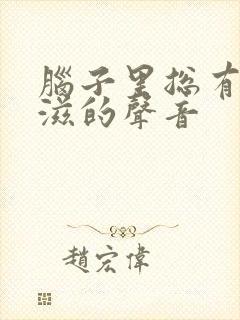 腦子里總有
滋的聲音
趙宏偉